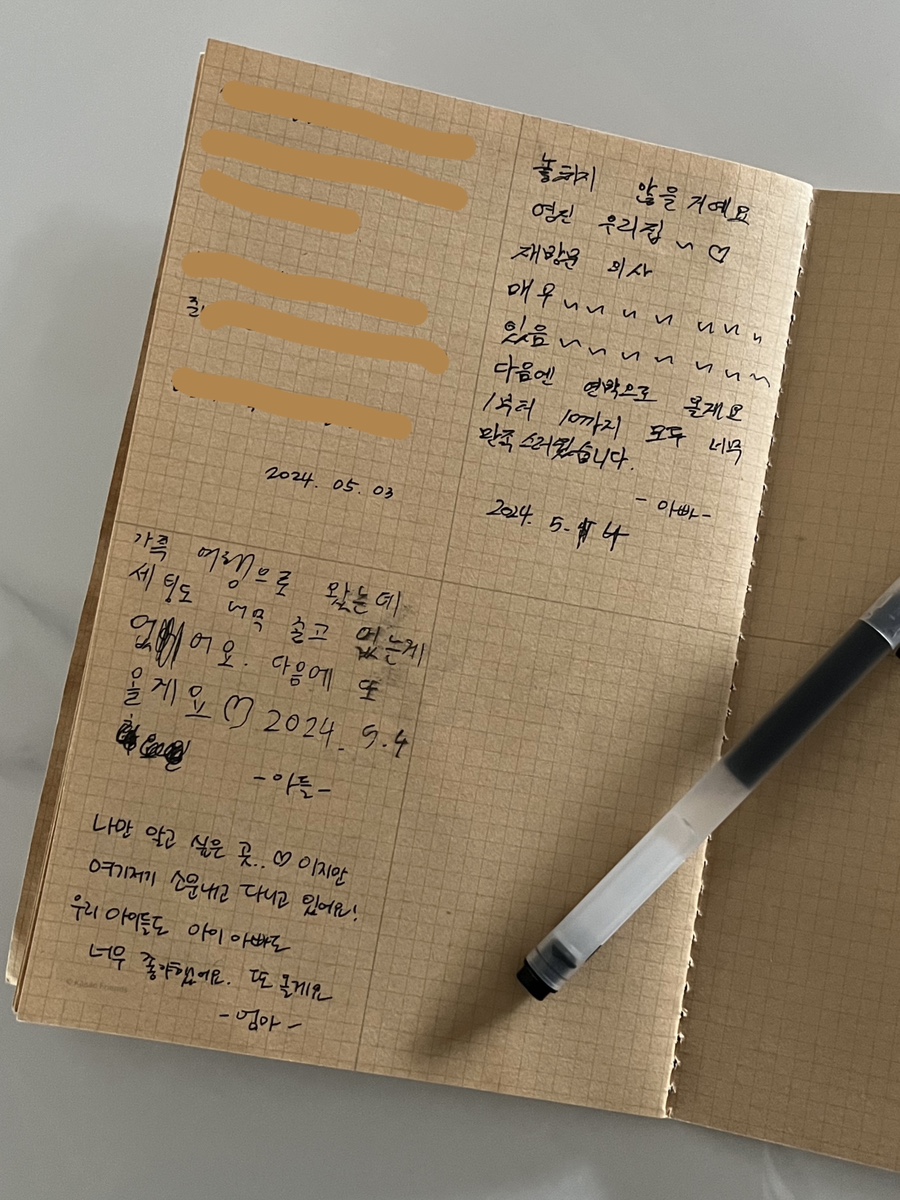 2024. 05. 03
놓하지 않을 거예요
영진 우리집 ~ ♡
재방문 의사
매우 ~~ ~ ~ ~~~ ~
있음 ~ ~ ~ ~ ~ ~ ~ ~
다음엔 연박으로 올게요
1부터 10까지 모두 너무
만족스러웠습니다.
- 아빠 -
2024. 5. 4
가족 여행으로 왔는데
세 팀도 너무 좋고 없는게
없어요. 다음에 또
올게요♡ 2024. 5.4
-아들-
나만 알고 싶은 곳..♡ 이지만
여기저기 소문내고 다니고 있어요!
우리 아이들도 아이 아빠도
너무 좋아했어요. 또 올게요
- 엄마 -